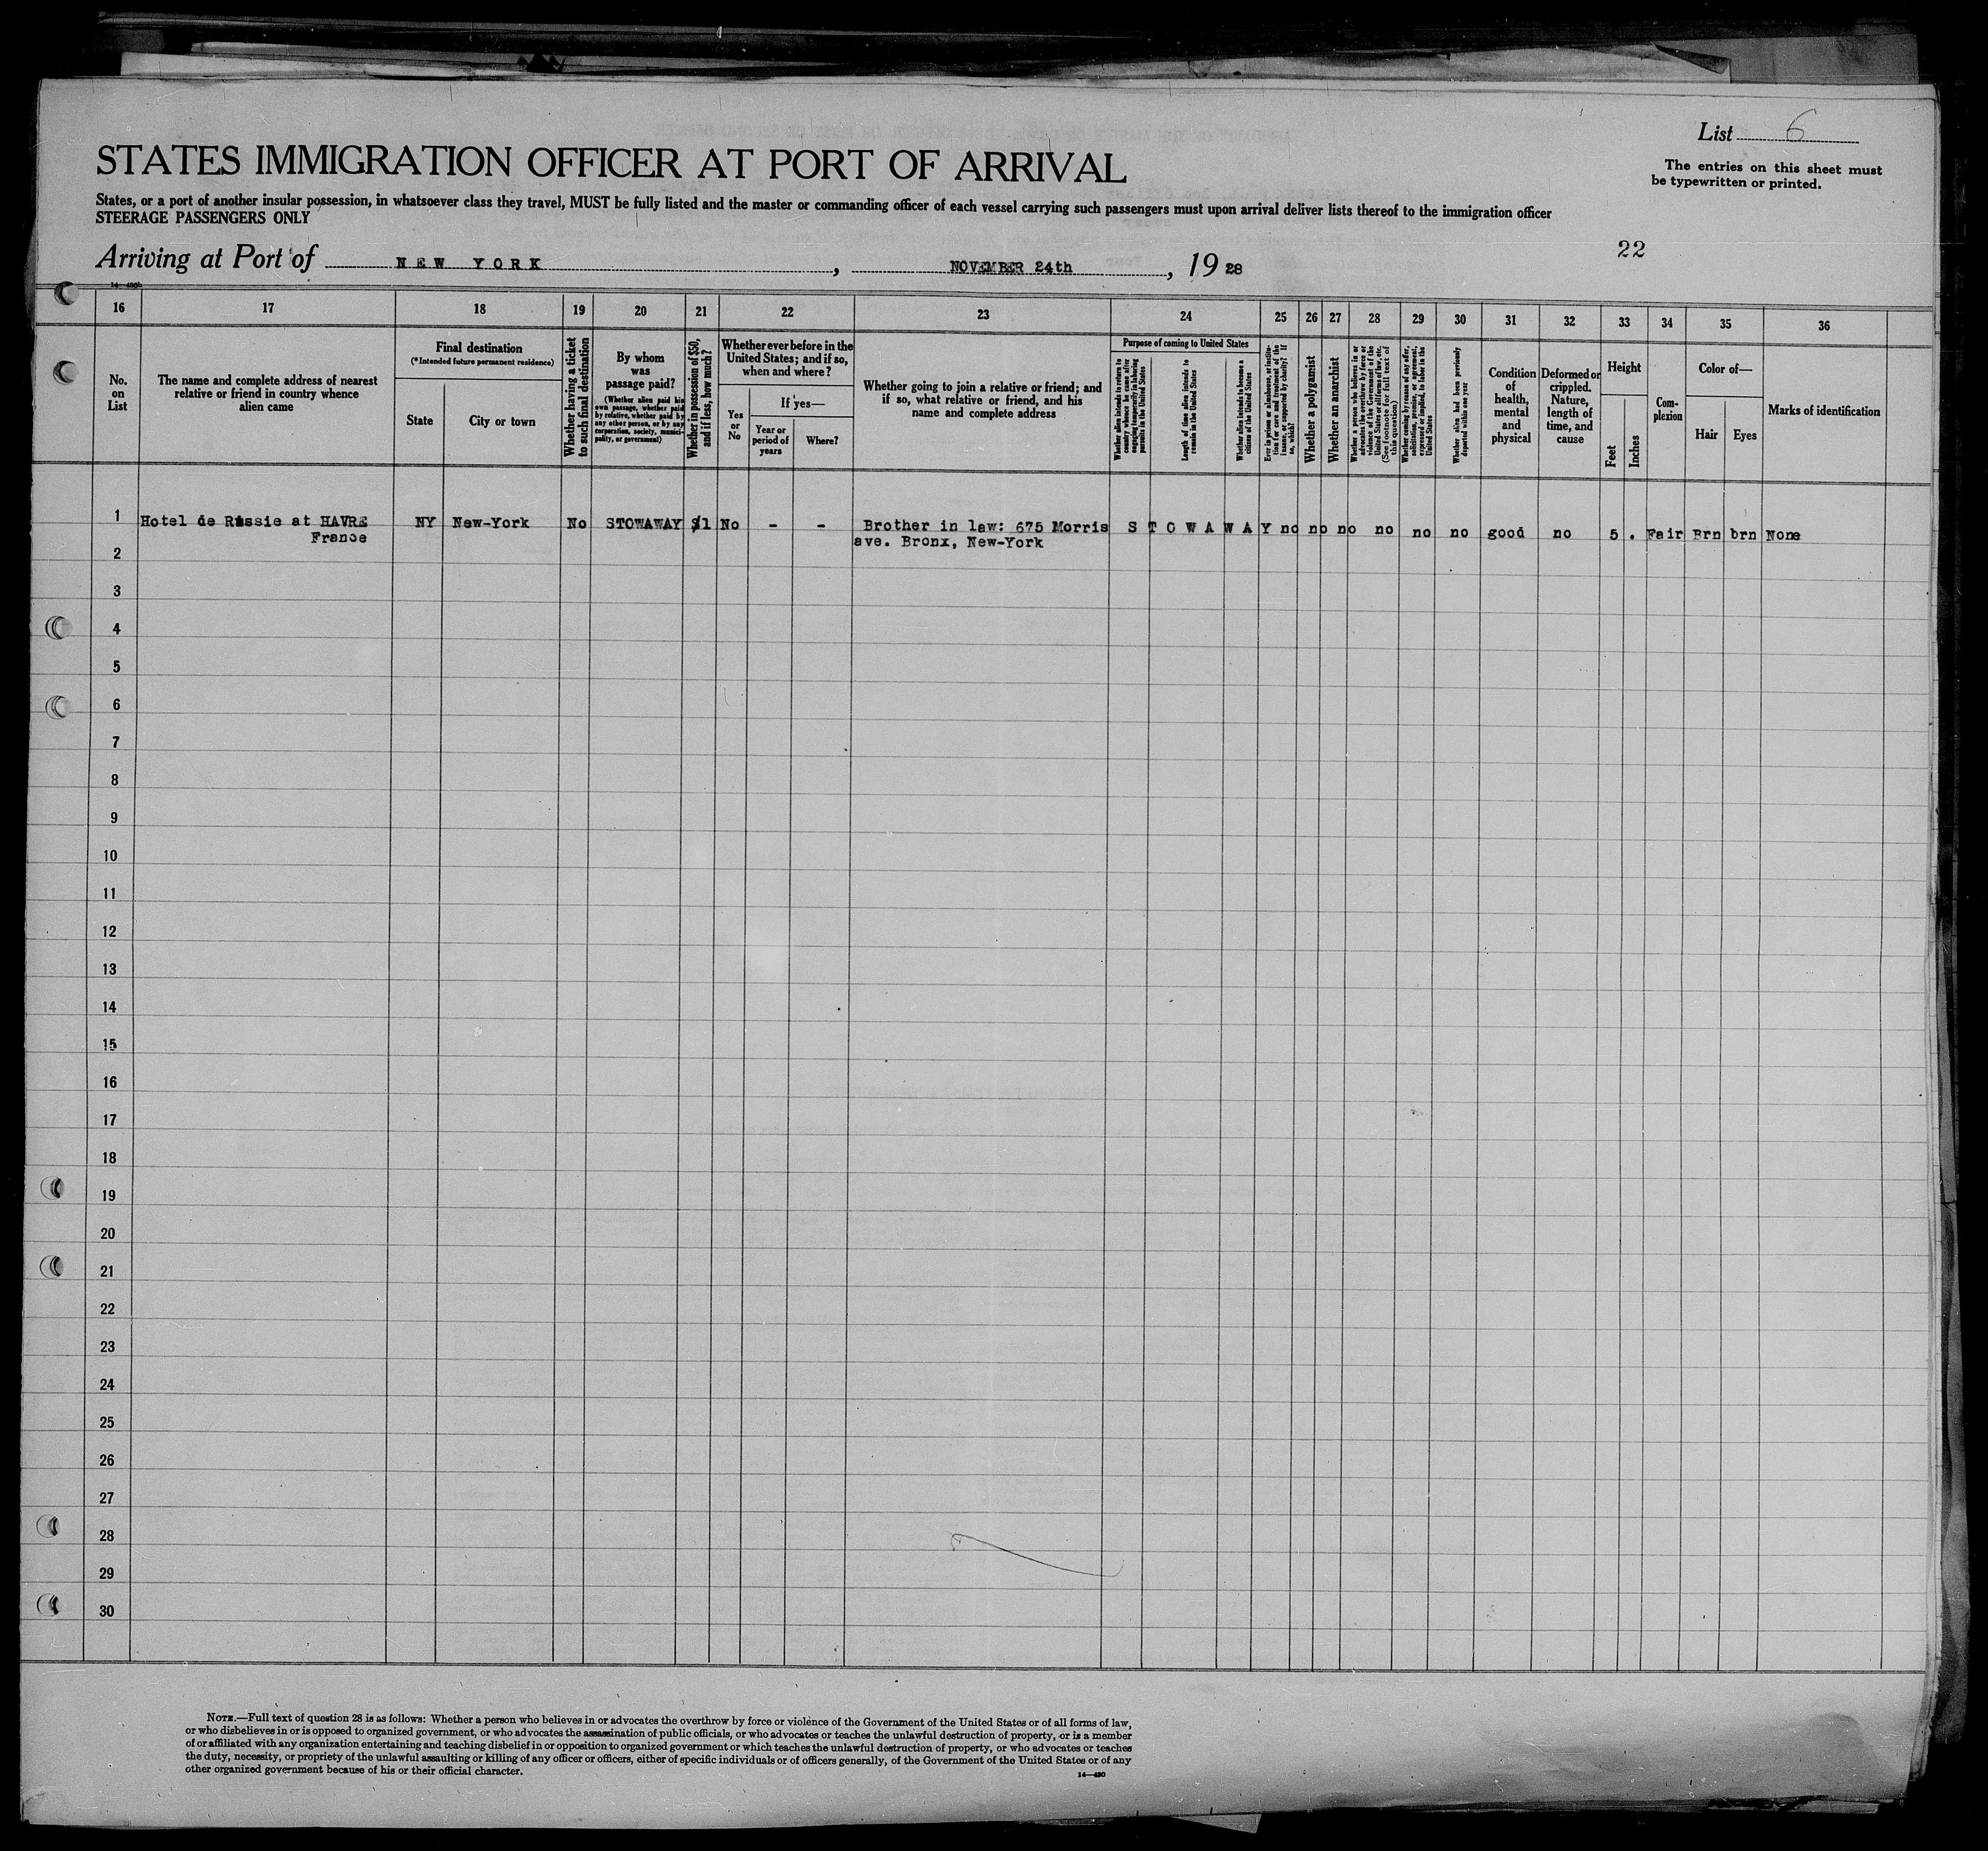 List 6
STATES IMMIGRATION OFFICER AT PORT OF ARRIVAL
The entries on this sheet must
be typewritten or printed.
States, or a port of another insular possession, in whatsoever class they travel, MUST be fully listed and the master or commanding officer of each vessel carrying such passengers must upon arrival deliver lists thereof to the immigration officer
STEERAGE PASSENGERS ONLY
22
Arriving at Port of NEW YORK, NOVEMBER 24th, 1928
16 17 18 19 20 21 22 23 24 25 26 27 28 29 30 31 32 33 34 35 36
No. on List
The name and complete address of nearest relative or friend in country whence alien came
Final destination
(*Intended future permanent residence)
State
City or town
Whether having a ticket to such final destination
By whom was passage paid?
(Whether alien paid his own passage, whether paid by relative, whether paid by any other person, or by any corporation, society, municipality, or government)
Whether in possession of $50, and if less, how much?
Whether ever before in the United States; and if so, when and where?
Yes or No
If yes—
Year or period of years
Where?
Whether going to join a relative or friend; and if so, what relative or friend, and his name and complete address
Purpose of coming to United States
Whether alien intends to return to country whence he came after engaging temporarily in laboring pursuits in the United States
Length of time alien intends to remain in the United States
Whether alien intends to become a citizen of the United States
Ever in prison or almshouse, or institution for care and treatment of the insane, or supported by charity? If so, which?
Whether a polygamist
Whether an anarchist
Whether a person who believes in or advocates the overthrow by force or violence of the Government of the United States or all forms of law, etc. (See footnote for full text of this question)
Whether coming by reason of any offer, solicitation, promise, or agreement, expressed or implied, to labor in the United States
Whether alien had been previously deported within one year
Condition of health, mental and physical
Deformed or crippled. Nature, length of time, and cause
Height
Feet
Inches
Complexion
Color of—
Hair
Eyes
Marks of identification
1 Hotel de Russie at HAVRE NY New-York No STOWAWAY $1 No - - Brother in law: 675 Morris STOWAWAY no no no no no no good no 5 . Fair Brn brn None
France ave. Bronx, New-York
2
3
4
5
6
7
8
9
10
11
12
13
14
15
16
17
18
19
20
21
22
23
24
25
26
27
28
29
30
NOTE.—Full text of question 28 is as follows: Whether a person who believes in or advocates the overthrow by force or violence of the Government of the United States or of all forms of law,
or who disbelieves in or is opposed to organized government, or who advocates the assassination of public officials, or who advocates or teaches the unlawful destruction of property, or is a member
of or affiliated with any organization entertaining and teaching disbelief in or opposition to organized government or which teaches the unlawful destruction of property, or who advocates or teaches
the duty, necessity, or propriety of the unlawful assaulting or killing of any officer or officers, either of specific individuals or of officers generally, of the Government of the United States or of any
other organized government because of his or their official character.
14—430